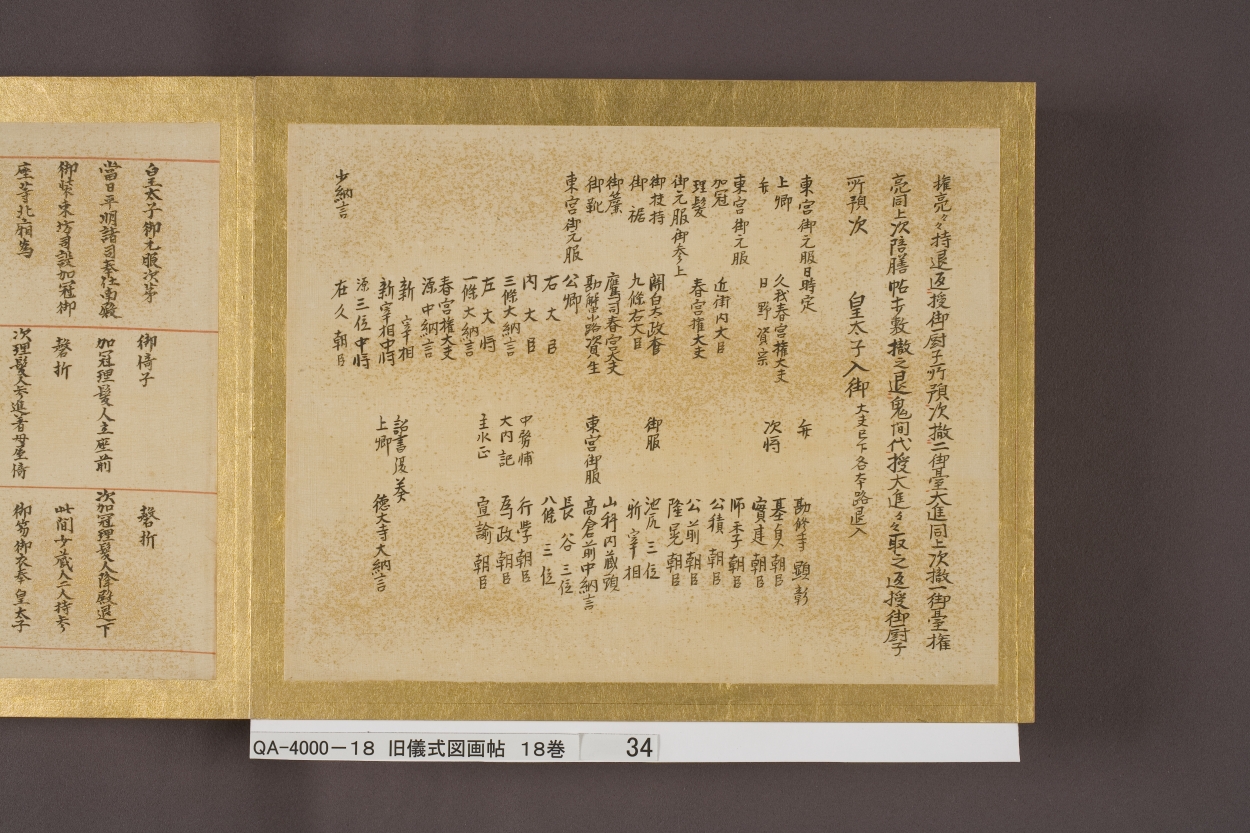 権亮々持退返授御厨子所預次撤二御臺大進同上次撤一御臺権
亮同上次陪膳帖歩敷撤之退鬼間代授大進々々取之返授御厨子
所預次　皇太子入御　大夫已下各本路退入
東宮御元服日時定
上卿　久我春宮権大夫
弁　日野資宗
弁　勘修寺顕彰
次将　基貞朝臣
實建朝臣
東宮御元服
加冠　近衛内大臣
理髪　春宮権大夫
師季朝臣
公積朝臣
公前朝臣
隆晃朝臣
御元服御参上
御扶持　関白太政大臣
御裾　九條右大臣
御服　池尻三位
新宰相
御簾　鷹司春宮大夫
御靴　勘解由小路資生
東宮御服　山科内蔵頭
高倉前中納言
東宮御元服
公卿
右大臣
内大臣
三條大納言
左大将
一條大納言
春宮権大夫
源中納言
新宰相
新宰相中将
源三位中将
長谷三位
八條三位
中務輔　行學朝臣
大内記　為政朝臣
主水正　宣諭朝臣
詔書覆奏
上卿　徳大寺大納言
少納言　在久朝臣
皇太子御元服次第
當日平明諸司奉仕南殿
御装束坊司設加冠御
座等北廂為
御倚子
加冠理髪人立座前
磬折
次理髪人参進着母屋倚
磬折
次加冠理髪人降殿退下
此間少蔵人二人持参
御笏御衣奉皇太子
QA-4000-18 旧儀式図画帖 18巻 34